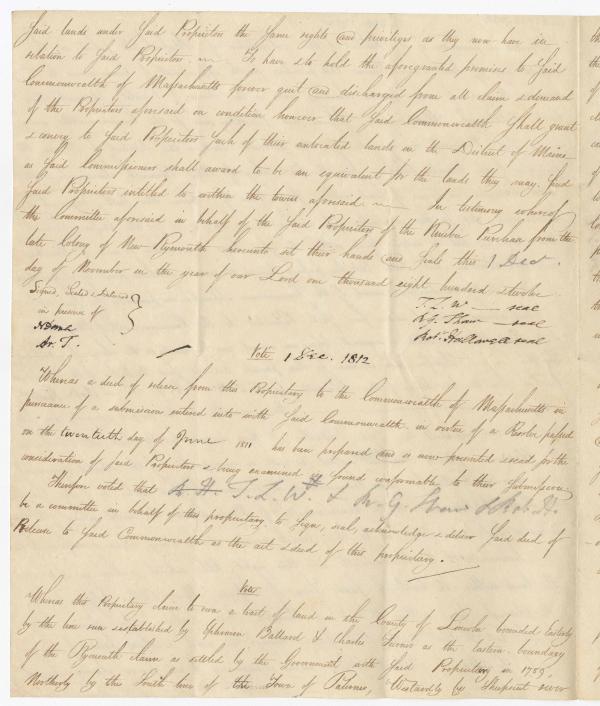 Said lands under Said Proprietors the Same rights and privileges as they now have in
relation to Said Proprietors. To have & to hold the aforegranted premises to Said
Commonwealth of Massachusetts forever quit and discharged from all claim & demand
of the Proprietors aforesaid on condition however that Said Commonwealth Shall grant
& convey to Said Proprietors Such of their unlocated lands in the District of Maine
as Said Commissioners shall award to be an equivalent for the lands they may find
Said Proprietors entitled to within the towns aforesaid In testimony whereof
the Committee aforesaid in behalf of the Said Proprietors of the Kennebec Purchase from the
late Colony of New Plymouth hereunto set their hands and Seals this 1 Dec.
day of November in the year of our Lord one thousand eight hundred & twelve
Signed, Sealed & Delivered
in presence of
Ar. T.
T. L. W. — seal
R. G. Shaw — seal
Rob. Hallowell seal
Vote 1 Dec. 1812
Whereas a deed of release from this Propriety to the Commonwealth of Massachusetts in
pursuance of a submission entered into with Said Commonwealth in virtue of a Resolve passed
on the twentieth day of June 1811 has been prepared and is now presented & read, for the
consideration of said Proprietors & being examined & found conformable to their Submission.
Therefore voted that A. H. T. L. W. & R. G. Shaw & Rob. H.
be a committee in behalf of this propriety to Sign, seal, acknowledge & deliver Said deed of
Release to Said Commonwealth as the act & deed of this propriety.
Vote
Whereas this Propriety claim to own a tract of land in the County of Lincoln bounded Easterly
by the line run & established by Ephraim Ballard & Charles Turner as the eastern boundary
of the Plymouth claim as settled by the Government with Said Propriety in 1789,
Northerly by the South line of the Town of Palermo, Westwardly by Sheepscut river